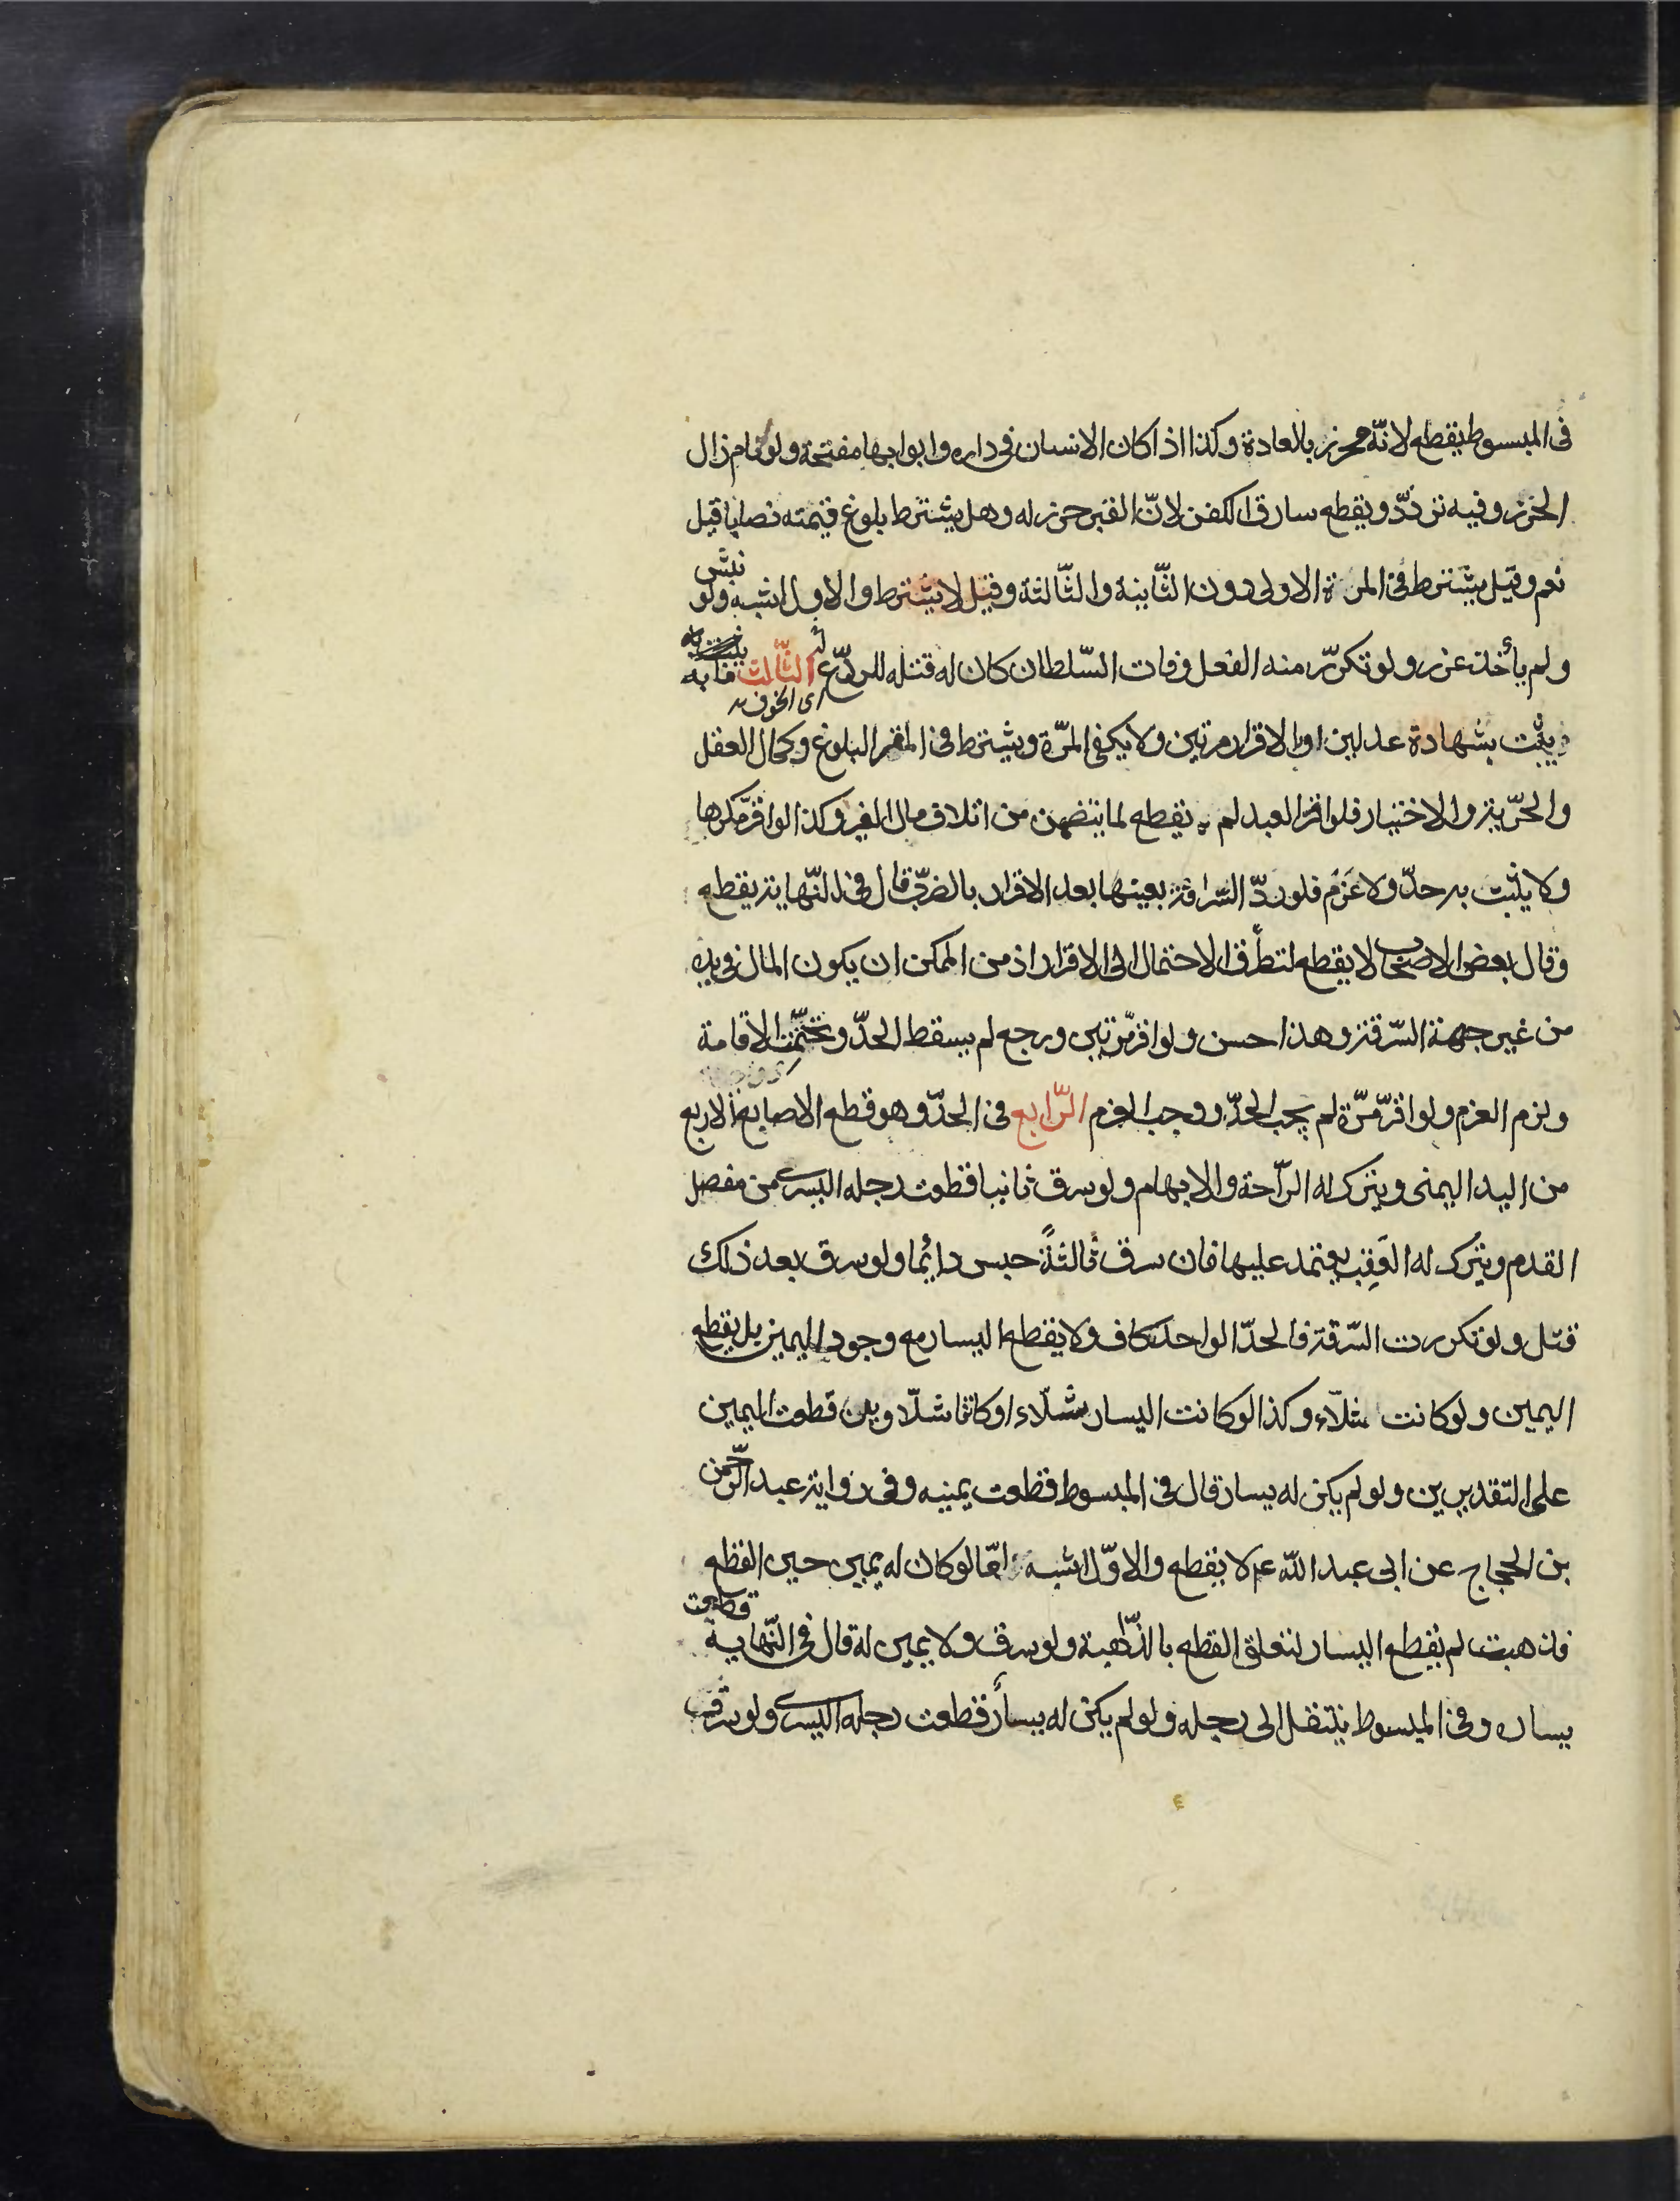 فى المبسوط يقطع لانّه محرز بالعادة وكذا اذا كان الانسان فى داره وابوابها مفتحة ولو نام زال
الحرز وفيه تردّد ويقطع سارق الكفن لانّ القبر حرز له وهل يشترط بلوغ قيمته نصابا قيل
نعم وقيل يشترط فى المرة الاولى دون الثّانية والثّالثة وقيل لا يشترط والاول اشبه ولو نبش
ولم يأخذ عزر ولو تكرّر منه الفعل وفات السّلطان كان له قتله للردع الثّالث ما به
اى الخوف
يثبت بشهادة عدلين او بالاقرار مرتين ولا يكفى المرّة ويشترط فى المقر البلوغ وكمال العقل
والحرّية والاختيار فلو اقرّ العبد لم يقطع لما يتضمن من اتلاف مال الغير وكذا لو اقرّ مكرها
ولا يثبت به حدّ ولا غرم فلو ردّ السّرقة بعينها بعد الاقرار بالضرب قال فى النّهاية يقطع
وقال بعض الاصحاب لا يقطع لتطرّق الاحتمال الى الاقرار اذ من الممكن ان يكون المال فى يده
من غير جهة السّرقة وهذا حسن ولو اقرّ مرّتين ورجع لم يسقط الحدّ وتحتّمت الاقامة
ولزم الغرم ولو اقرّ مرّة لم يجب الحدّ ووجب الغرم الرّابع فى الحدّ وهو قطع الاصابع الاربع
من اليد اليمنى ويترك له الرّاحة والابهام ولو سرق ثانيا قطعت رجله اليسرى من مفصل
القدم ويترك له العَقِب يعتمد عليها فان سرق ثالثةً حبس دائما ولو سرق بعد ذلك
قتل ولو تكررت السّرقة فالحدّ الواحد كاف ولا يقطع اليسار مع وجود اليمين بل يقطع
اليمين ولو كانت شلّاء وكذا لو كانت اليسار شلّاء او كانتا شلّاوين قطعت اليمين
على التّقديرين ولو لم يكن له يسار قال فى المبسوط قطعت يمينه وفى رواية عبد الرّحمن
بن الحجاج عن ابى عبد الله عم لا يقطع والاوّل اشبه امّا لو كان له يمين حين القطع
فذهبت لم يقطع اليسار لتعلق القطع بالذّاهبة ولو سرق ولا يمين له قال فى النّهاية قطعت
يساره وفى المبسوط ينتقل الى رجله ولو لم يكن له يسار قطعت رجله اليسرى ولو سرق